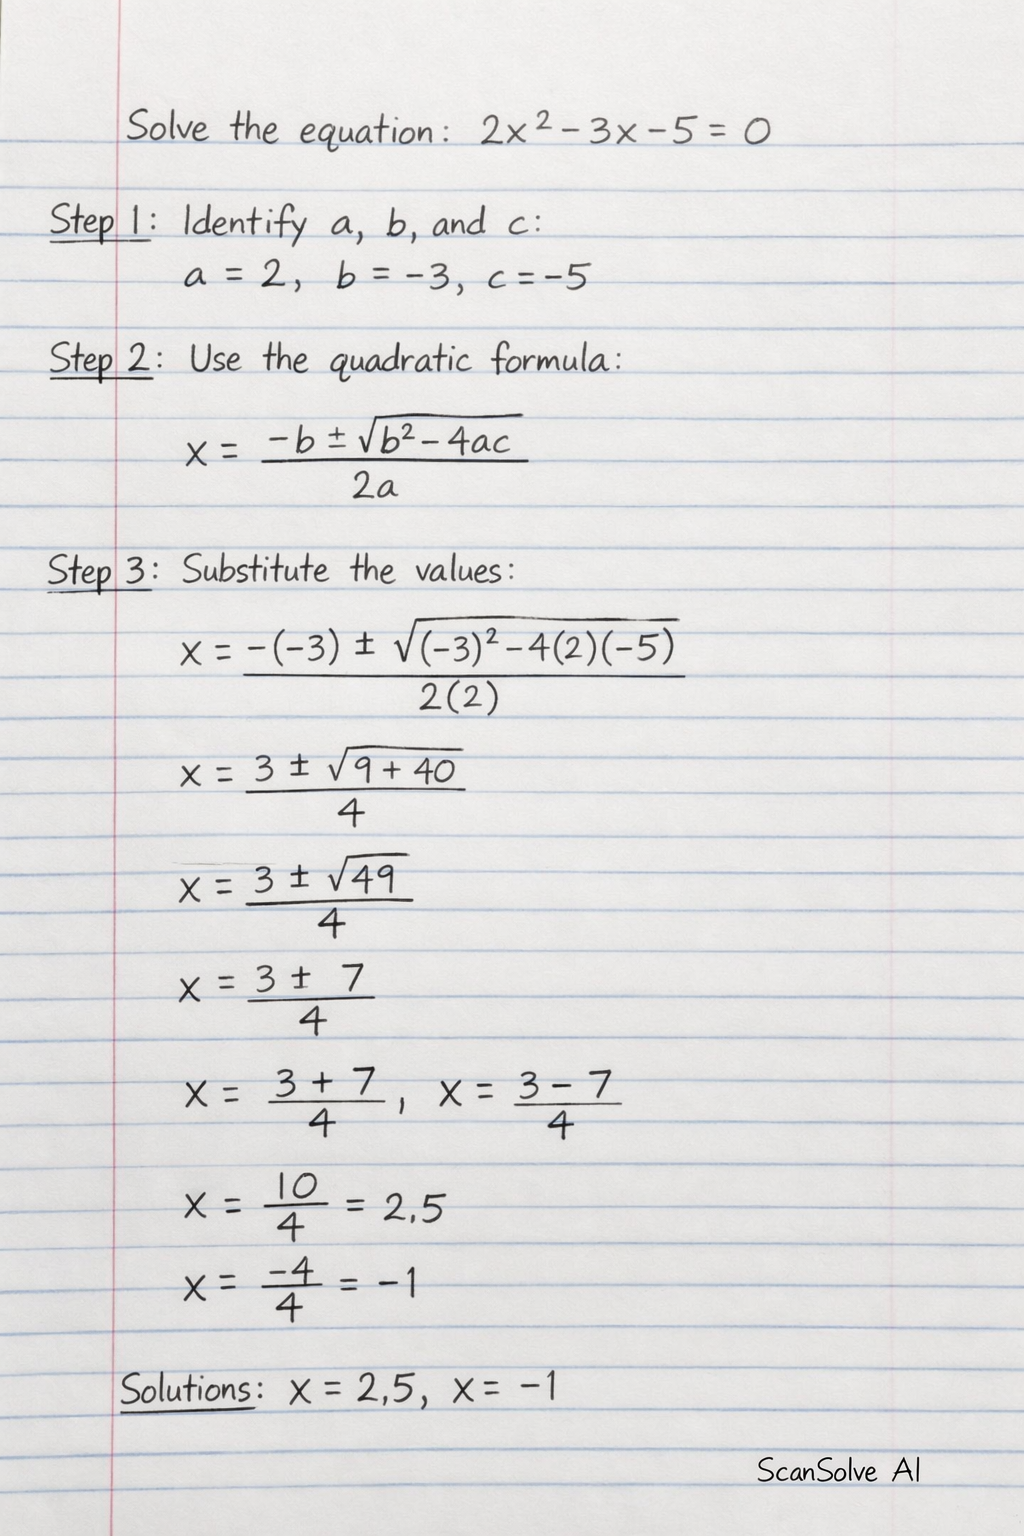 Solve the equation: 2x² - 3x - 5 = 0
Step 1: Identify a, b, and c:
a = 2, b = -3, c = -5
Step 2: Use the quadratic formula:
x = (-b ± √(b² - 4ac)) / 2a
Step 3: Substitute the values:
x = (-(-3) ± √((-3)² - 4(2)(-5))) / 2(2)
x = (3 ± √(9 + 40)) / 4
x = (3 ± √49) / 4
x = (3 ± 7) / 4
x = (3 + 7) / 4, x = (3 - 7) / 4
x = 10/4 = 2,5
x = -4/4 = -1
Solutions: x = 2,5, x = -1
ScanSolve AI